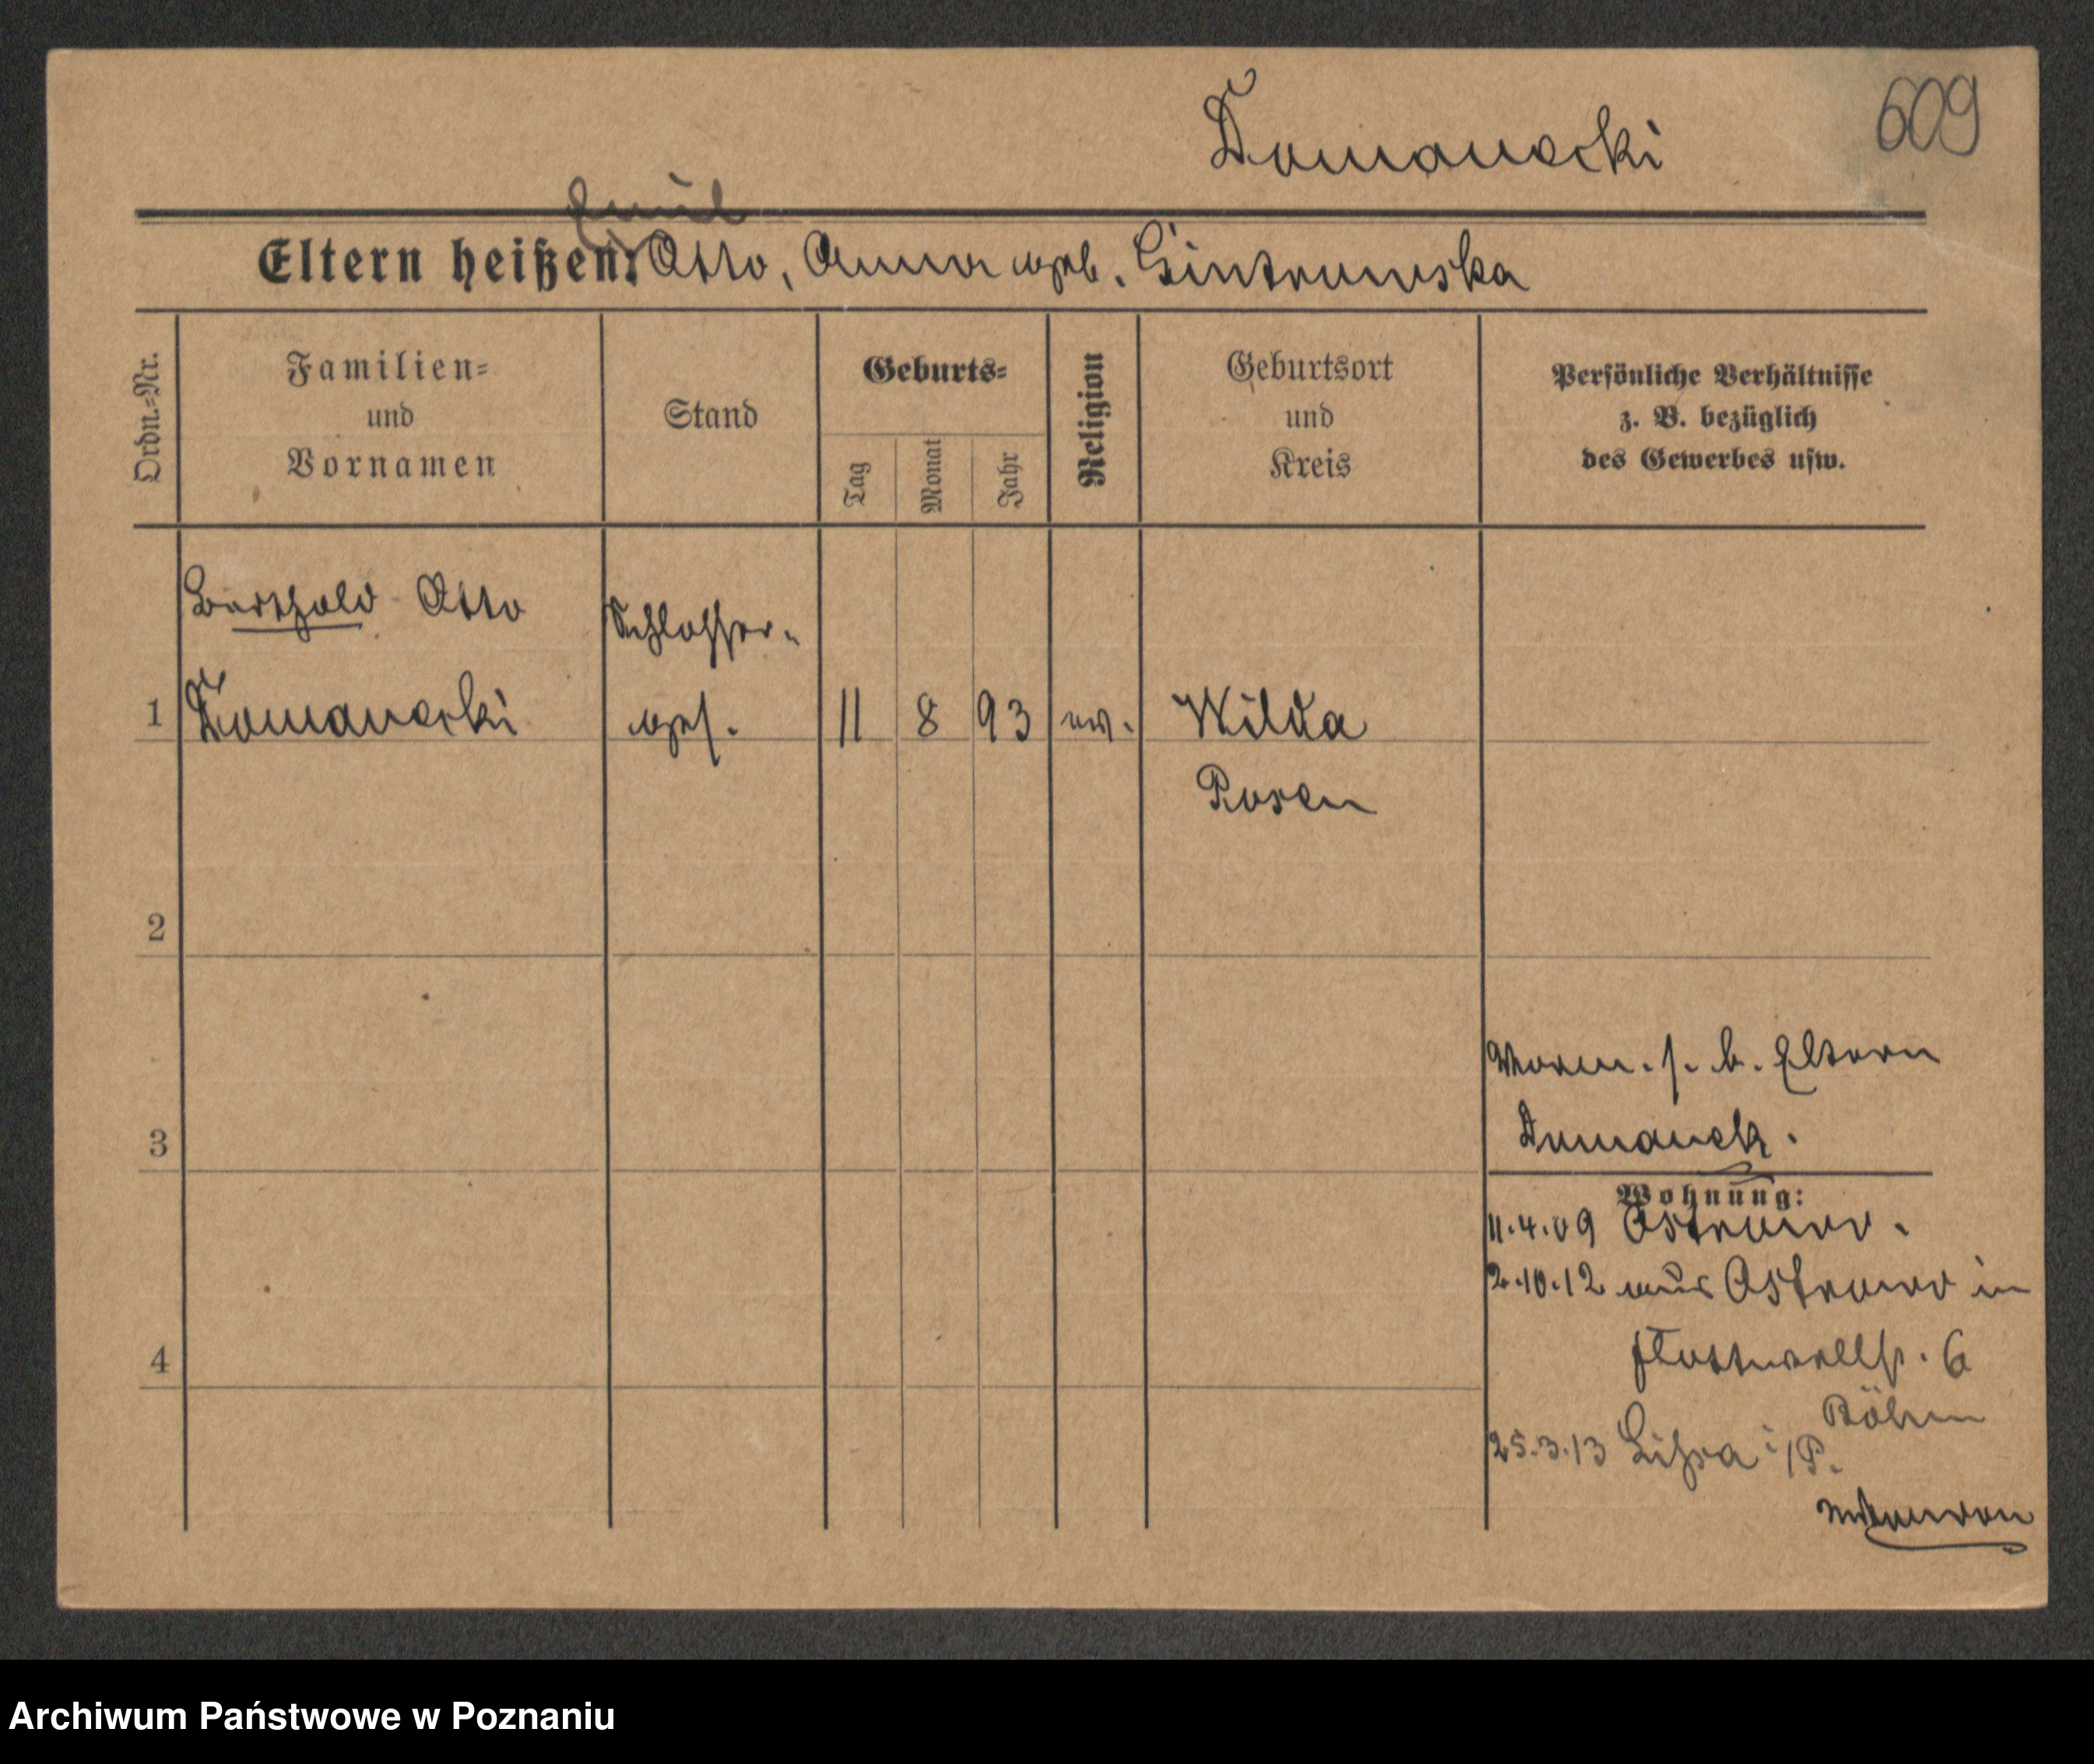 609
Domanecki
Emil
Eltern heißen: Otto, Anna geb. Gintrowska
Ordn.=Nr.
Familien= und Vornamen
Stand
Geburts=
Tag
Monat
Jahr
Religion
Geburtsort und Kreis
Persönliche Verhältnisse
z. B. bezüglich
des Gewerbes usw.
Berthold Otto
Schlosser-
1 Domanecki ges. 11 8 93 ev. Wilda
Posen
2
Vorm. s. b. Eltern
3 Domaneck.
Wohnung:
11.4.09 Ostrowo.
2.10.12 aus Ostrowo in
4 Flottwellst. 6
Böhm
25.3.13 Lissa i/P.
Archiwum Państwowe w Poznaniu